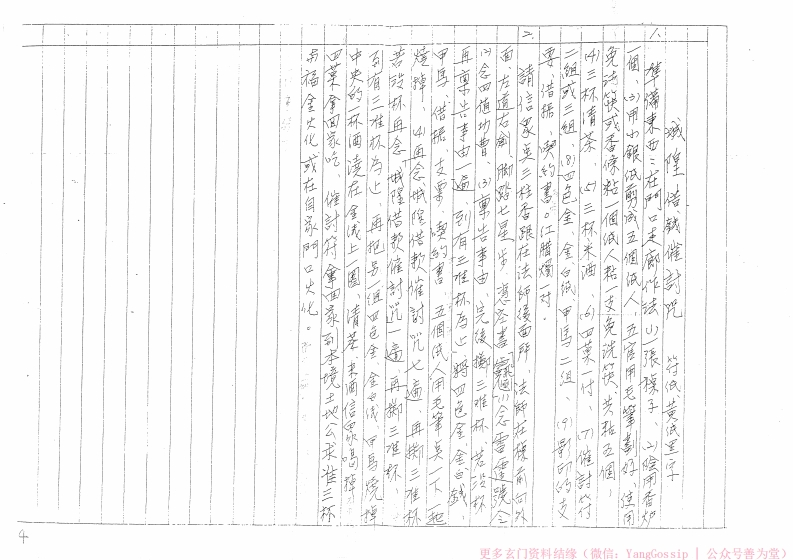 城隍借錢催討咒 符紙黃紙黑字
1. 準備東西：在門口走廊作法(1)一張桌子、(2)陰用香炉
一個、(3)用小銀紙剪成五個紙人，五官用毛筆劃好，使用
免洗筷或香條粘一個紙人粘一支免洗筷，共粘五個，
(4)三杯清茶、(5)三杯米酒，(6)四菓一付，(7)催討符
二組或三組，(8)四色金、金白紙甲馬二組、(9)影印的支
票、借据、契約書。紅腊燭一付。
2. 請信眾點三柱香跟在法師後面，法師在桌前向外
面，左追右創，脚踏七星步，(1)念雷霆號令
(2)念四值功曹，(3)稟告事由，完後擲三准杯，若沒杯
再稟告事由一遍，到有三准杯為止，將四色金、金白錢、
甲馬、借据、支票、契約書，五個紙人用毛筆點一下一起
燒掉，(4)再念城隍借款催討咒七遍，再擲三准杯
若沒杯再念城隍借款催討咒一遍，再擲三准杯，
到有三准杯為止，再把另一組四色金、金白錢、甲馬燒掉
中央的一杯酒澆在金錢上一圈，清茶、米酒信眾喝掉
四菓拿回家吃，催討符拿回家到本境土地公求准三杯
福金火化或在自家門口火化。
4
更多玄门资料结缘（微信：YangGossip | 公众号善为堂）